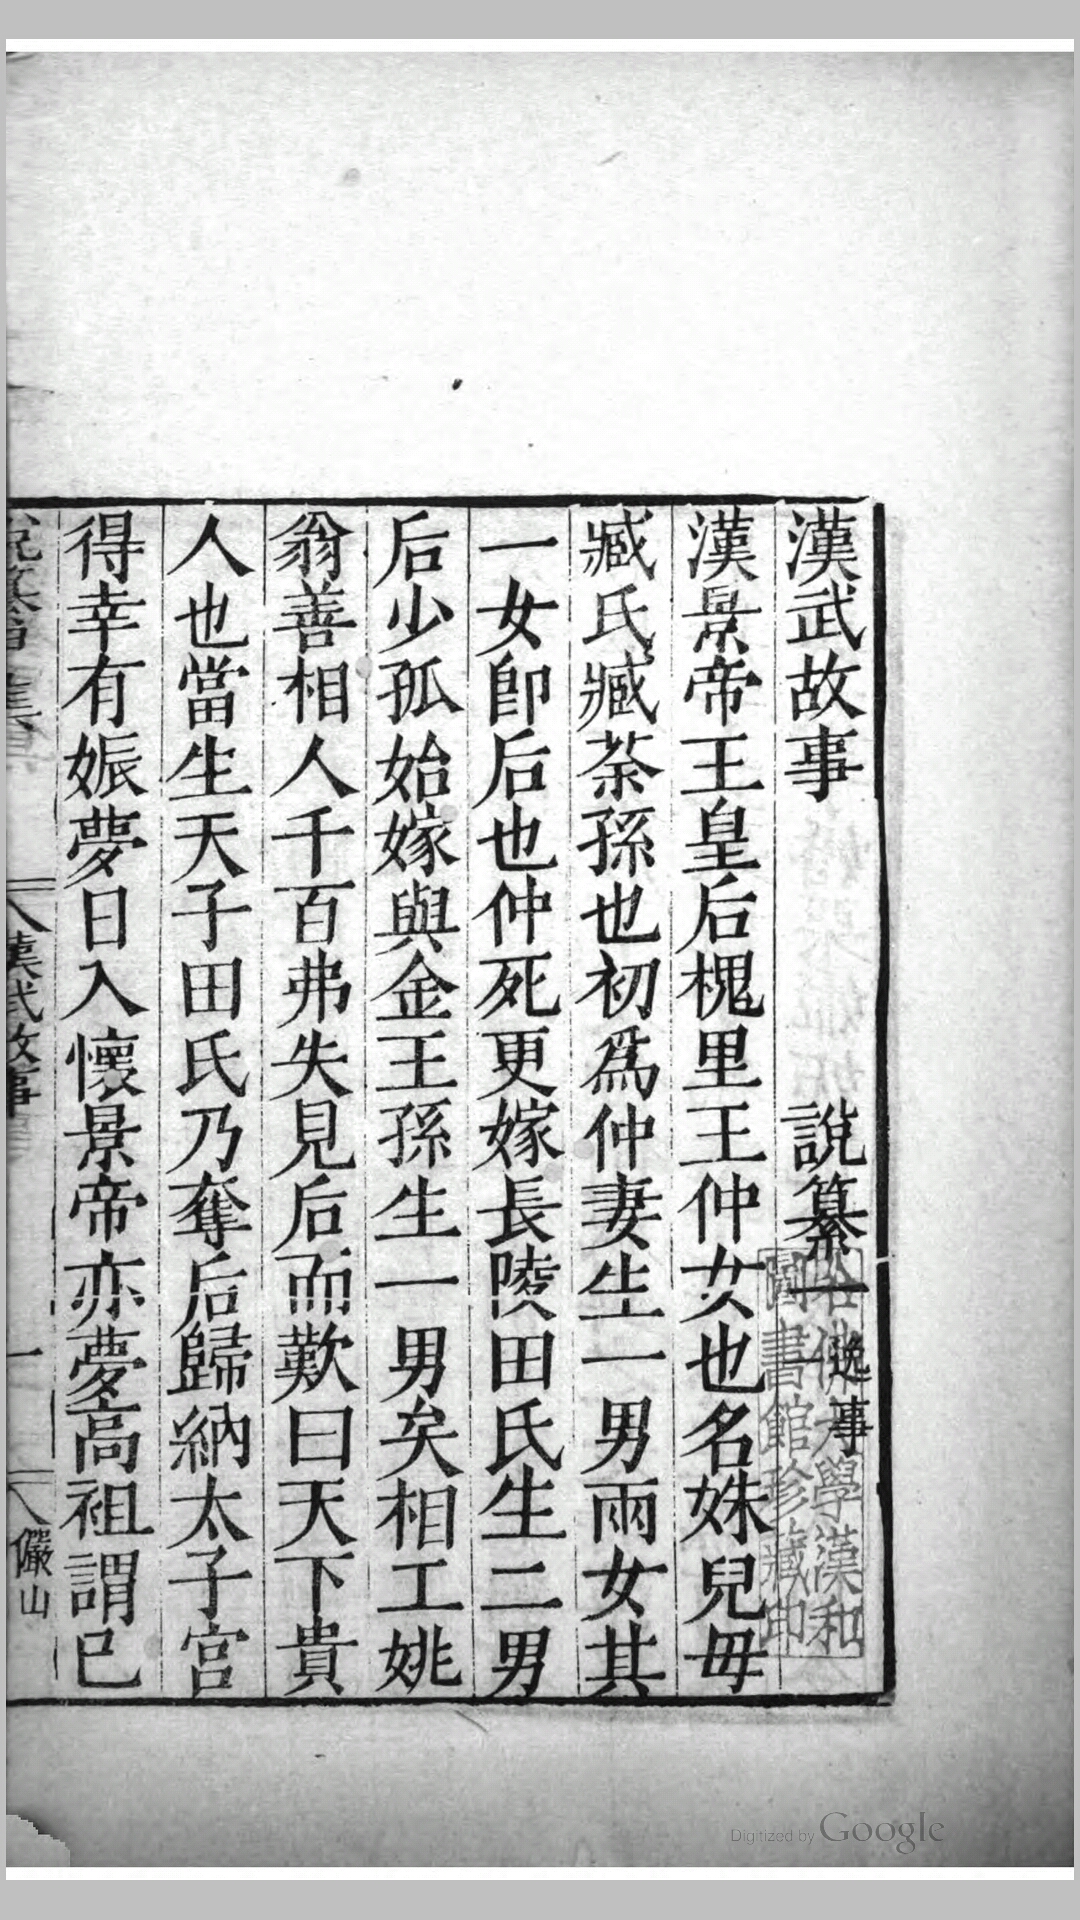 漢武故事 說纂一 逸事
漢景帝王皇后槐里王仲女也名姝兒毋
臧氏臧荼孫也初爲仲妻生一男兩女其
一女卽后也仲死更嫁長陵田氏生二男
后少孤始嫁與金王孫生一男矣相工姚
翁善相人千百弗失見后而歎曰天下貴
人也當生天子田氏乃奪后歸納太子宮
得幸有娠夢日入懷景帝亦夢高祖謂已
漢武故事 一 儼山
哈佛大學漢和
圖書館珍藏印
Digitized by Google